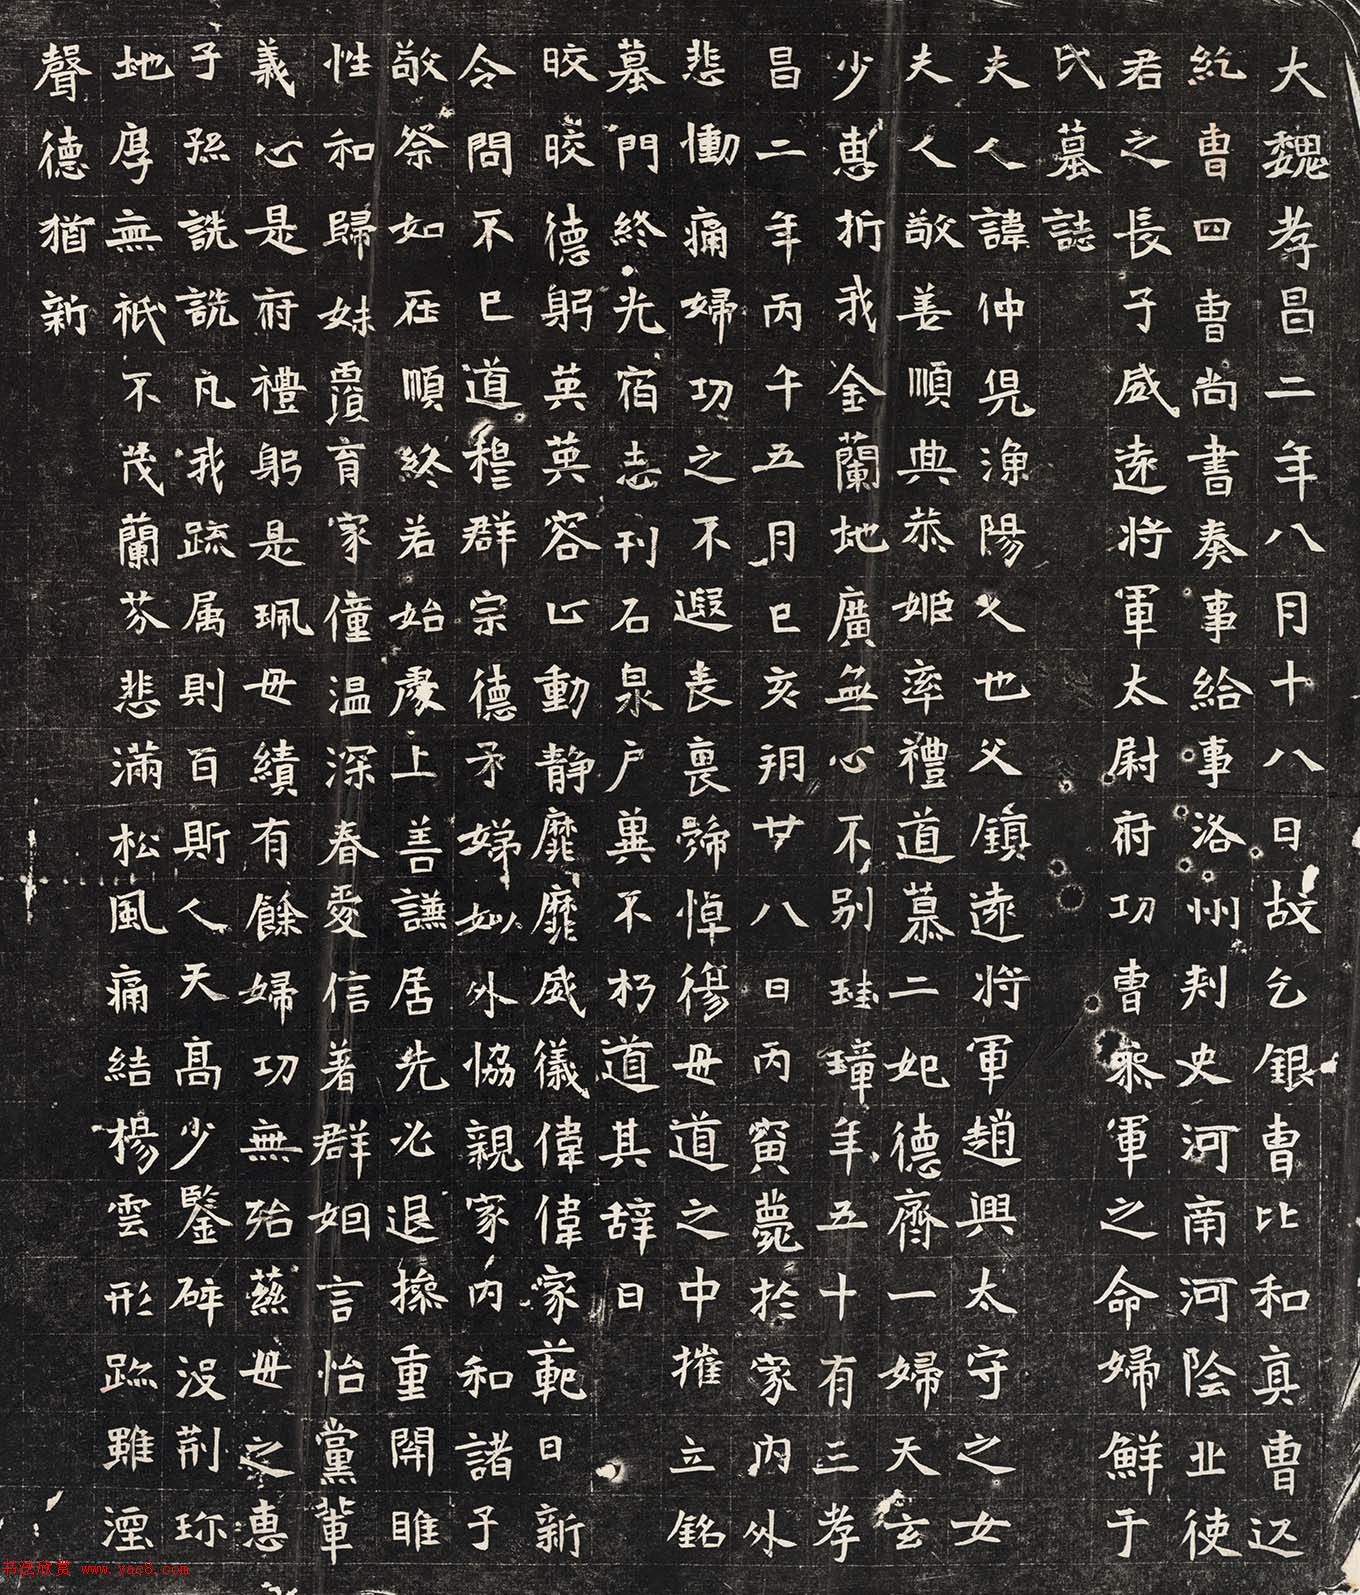 大魏孝昌二年八月十八日故乞銀曺比和真曺匹
紇曺四曺尚書奏事給事洛州刾史河南河陰北使
君之長子威逺将軍太尉府功曺叅軍之命婦鮮于
氏墓誌
夫人諱仲兒漁陽人也父鎮逺将軍趙興太守之女
夫人敬善順典恭姬率禮道慕二妃德齊一婦天玄
少惠折我金蘭地廣無心不别珪璋年五十有三孝
昌二年丙午五月巳亥朔廿八日丙寅薨於家内外
悲慟痛婦功之不遐丧裏號悼傷毋道之中摧立銘
墓門終光宿志刊石泉户兾不朽道其辞日
晈晈德躬英英容止動静靡靡威儀偉偉家範日新
令問不巳道穆群宗德矛娣姒外恊親家内和諸子
敬祭如在順終若始處上善謙居先必退操重開睢
性和歸妹覆育家僮温深春愛信著群姻言怡黨軰
義心是府禮躬是珮毋績有餘婦功無殆慈毋之惠
子孫詵詵凡我疏属則百斯人天髙少鑒碎没荆珎
地厚無祇不茂蘭芬悲滿松風痛結楊雲形跡雖湮
聲德猶新
书法欣赏 www.yac8.com